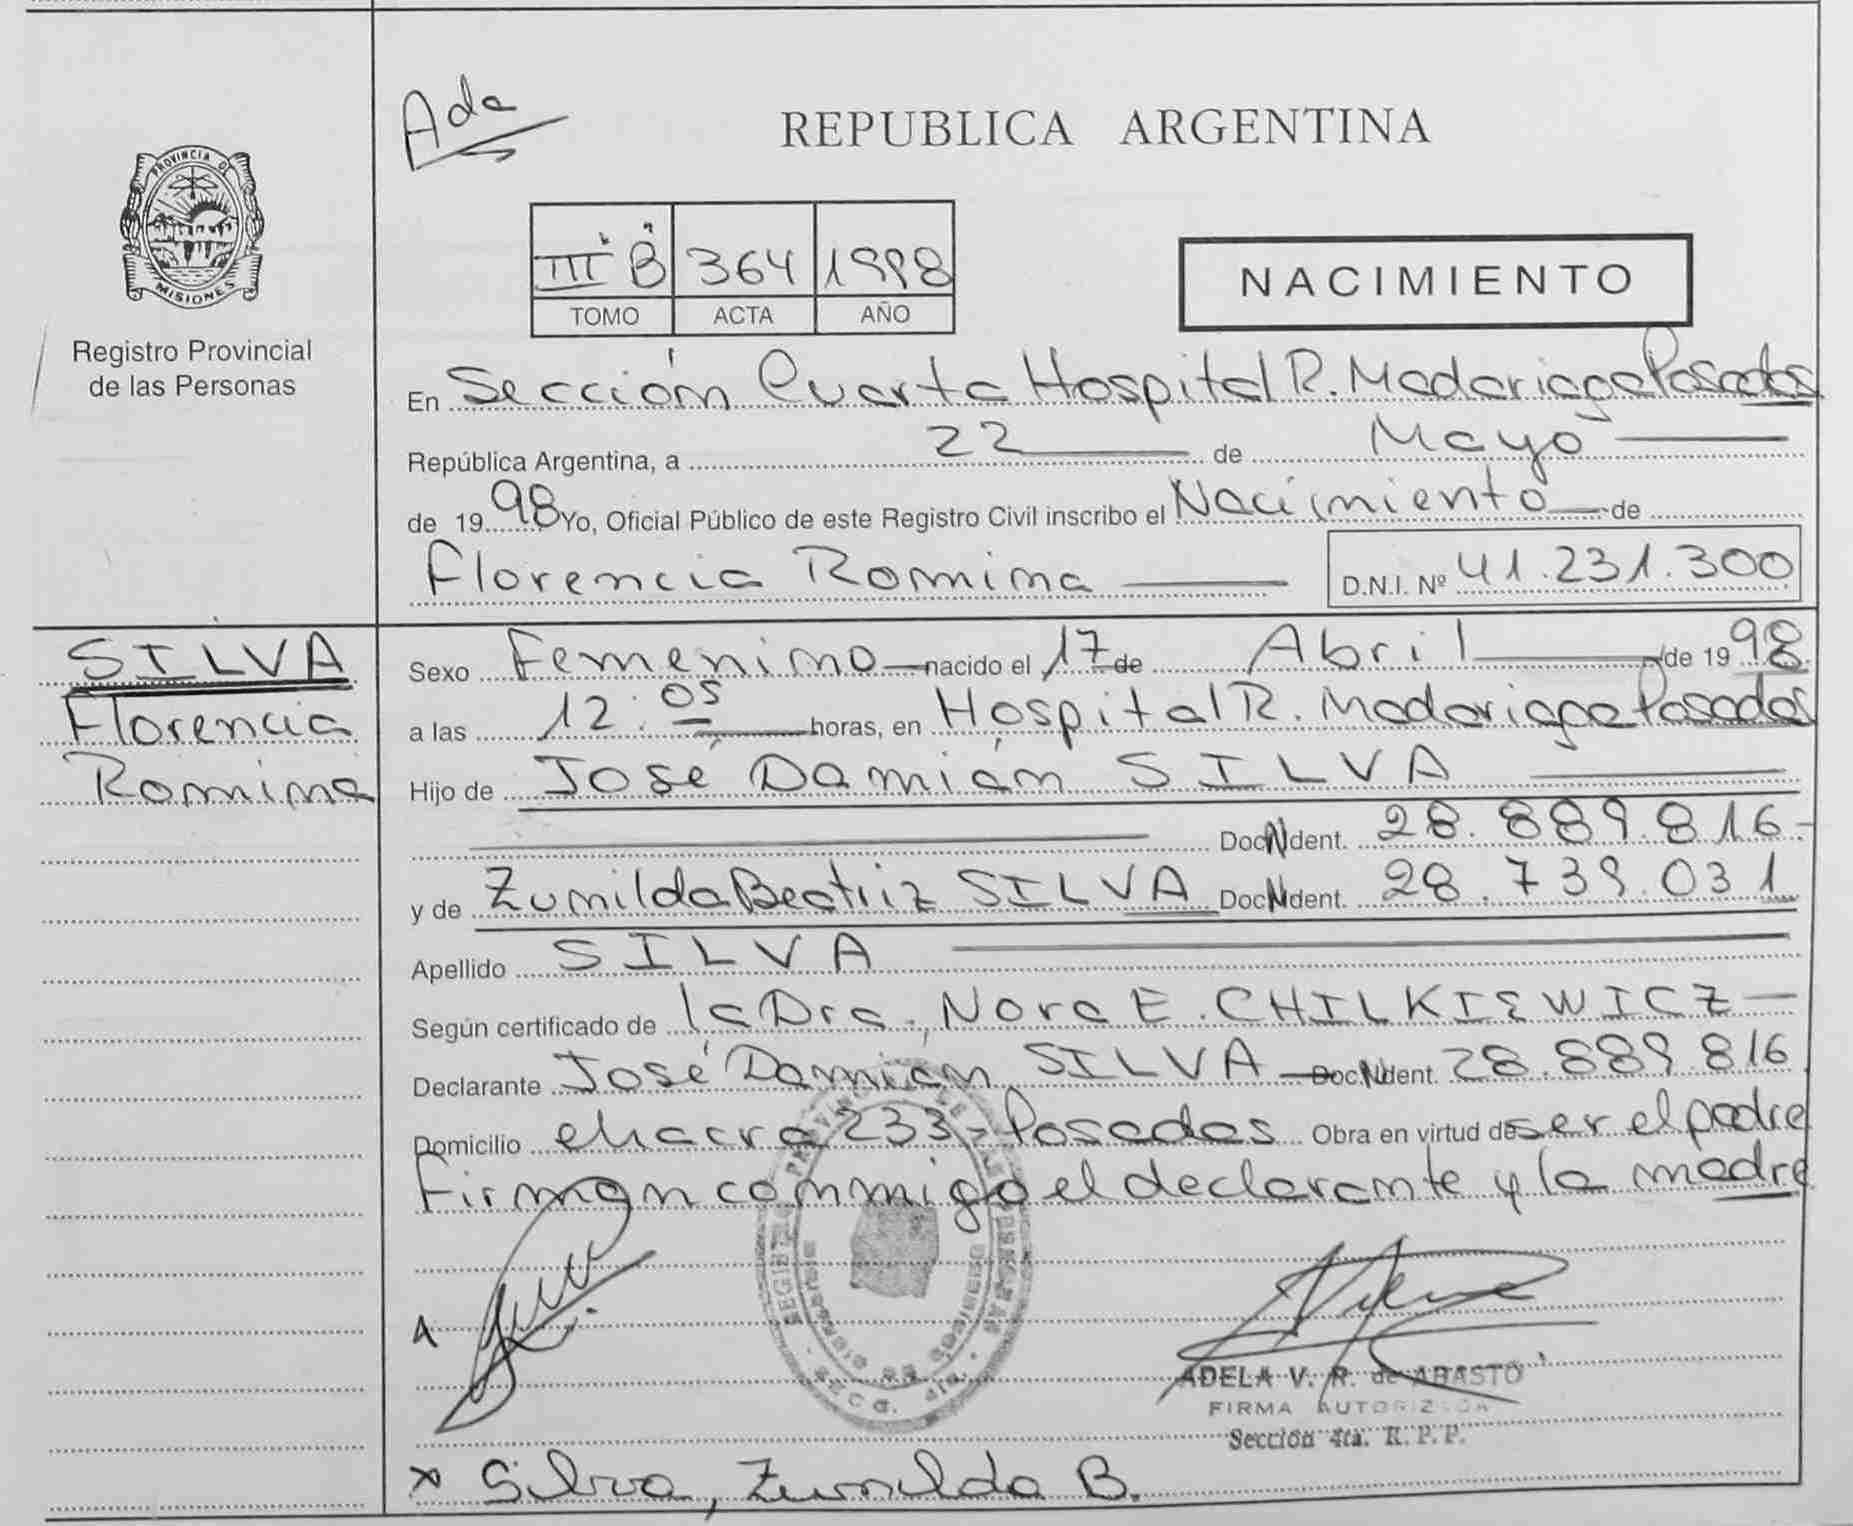 Ada
REPUBLICA ARGENTINA
PROVINCIA DE
MISIONES
Registro Provincial
de las Personas
III "B" 364 1998
TOMO ACTA AÑO
NACIMIENTO
En Sección Cuarta Hospital R. Madariaga Posadas
República Argentina, a 22 de Mayo
de 1998 Yo, Oficial Público de este Registro Civil inscribo el Nacimiento de
Florencia Romina D.N.I. Nº 41.231.300
SILVA
Florencia
Romina
Sexo Femenino nacido el 17 de Abril de 1998
a las 12:05 horas, en Hospital R. Madariaga Posadas
Hijo de José Damián SILVA
Doc. N Ident. 28.889.816
y de Zunilda Beatriz SILVA Doc. N Ident. 28.739.031
Apellido SILVA
Según certificado de la Dra. Nora E. CHILKIEWICZ
Declarante José Damián SILVA Doc. N Ident. 28.889.816
Domicilio chacra 233 - Posadas Obra en virtud de ser el padre
Firman conmigo el declarante y la madre
ADELA V. R. de ABASTO
FIRMA AUTORIZADA
Sección 4ta. R.P.P.
x Silva, Zunilda B.